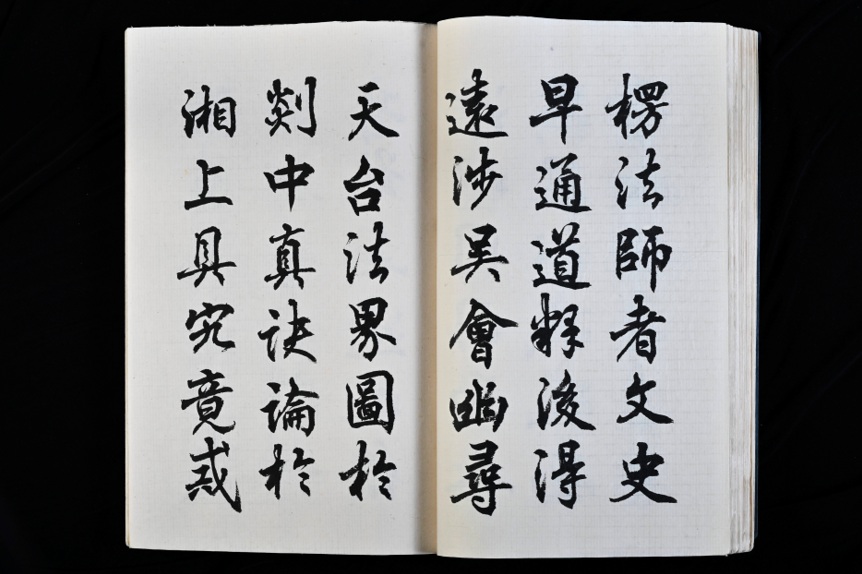 楞法師者文史
早通道釋後得
遠涉吳會幽尋
天台法界圖於
剡中真訣論於
湘上具究竟戒